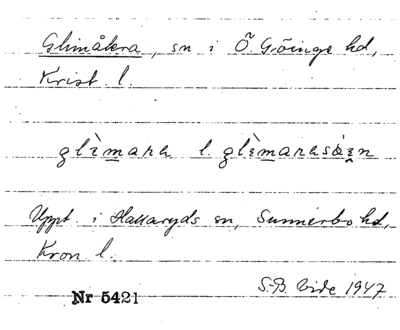 Glimåkra, sn i Ö. Göinge hd,
Krist l.
glìmara l. glìmarasòkn
Uppt. i Hallaryds sn, Sunnerbo hd,
Kron l.
S-B. Vide 1947
Nr 5421